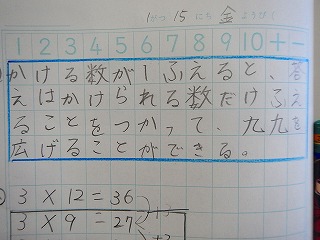 15 にち 金 ようび
1 2 3 4 5 6 7 8 9 10 + -
かける数が1ふえると、答
えはかけられる数だけふえ
ることをつかって、九九を
広げることができる。
3 × 12 = 36
3 × 9 = 27 +3